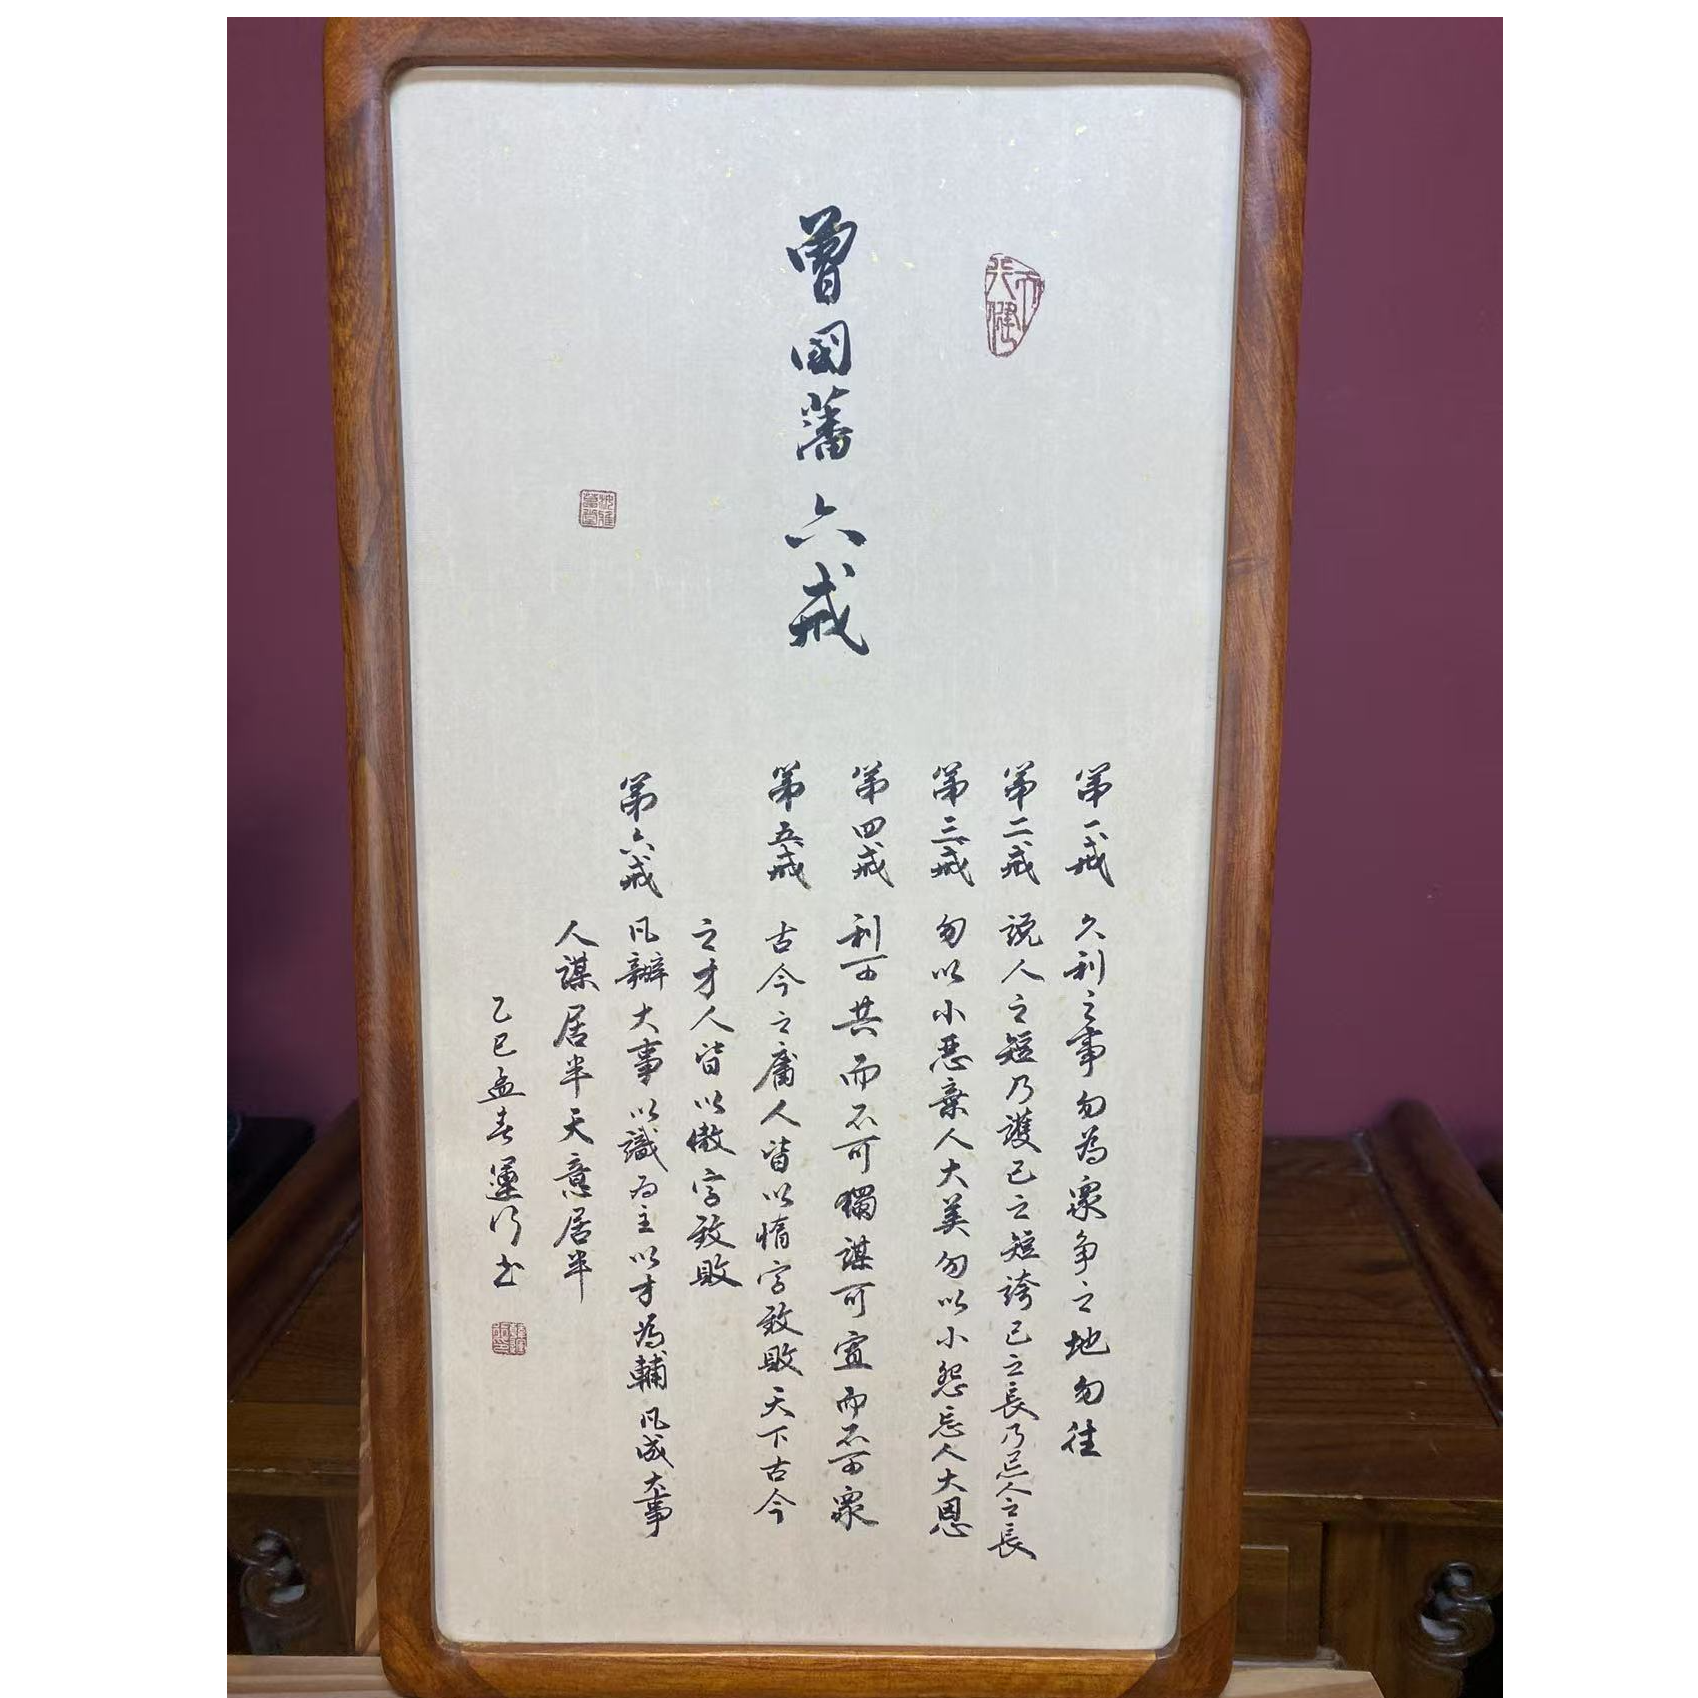 曾國藩六戒
第一戒 久利之事勿為衆争之地勿往
第二戒 説人之短乃護己之短誇己之長乃忌人之長
第三戒 勿以小惡棄人大美勿以小怨忘人大恩
第四戒 利可共而不可獨謀可寡而不可衆
第五戒 古今之庸人皆以惰字致敗天下古今
之才人皆以傲字致敗
第六戒 凡辦大事以識為主以才為輔凡成大事
人謀居半天意居半
乙巳孟春運行书
天行健